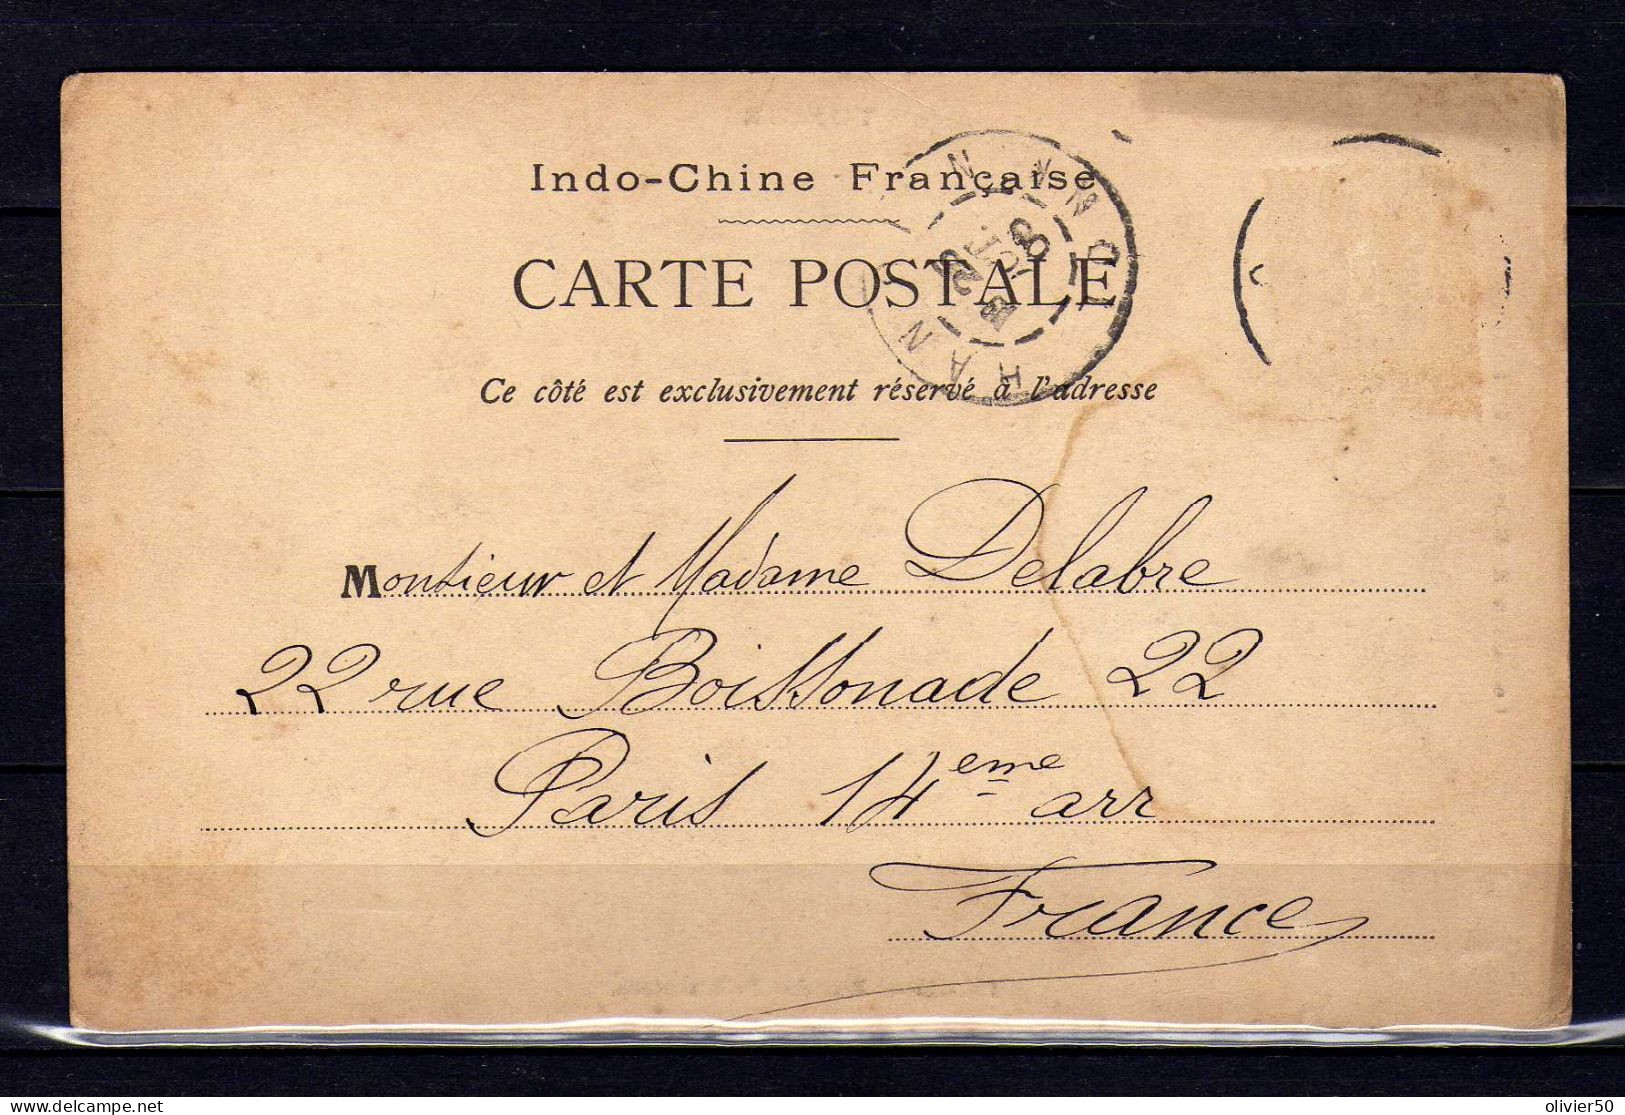 Indo-Chine Française
CARTE POSTALE
Ce côté est exclusivement réservé à l'adresse
Monsieur et Madame Delabre
22 rue Boissonade 22
Paris 14eme arr
France
delcampe.net
olivier50